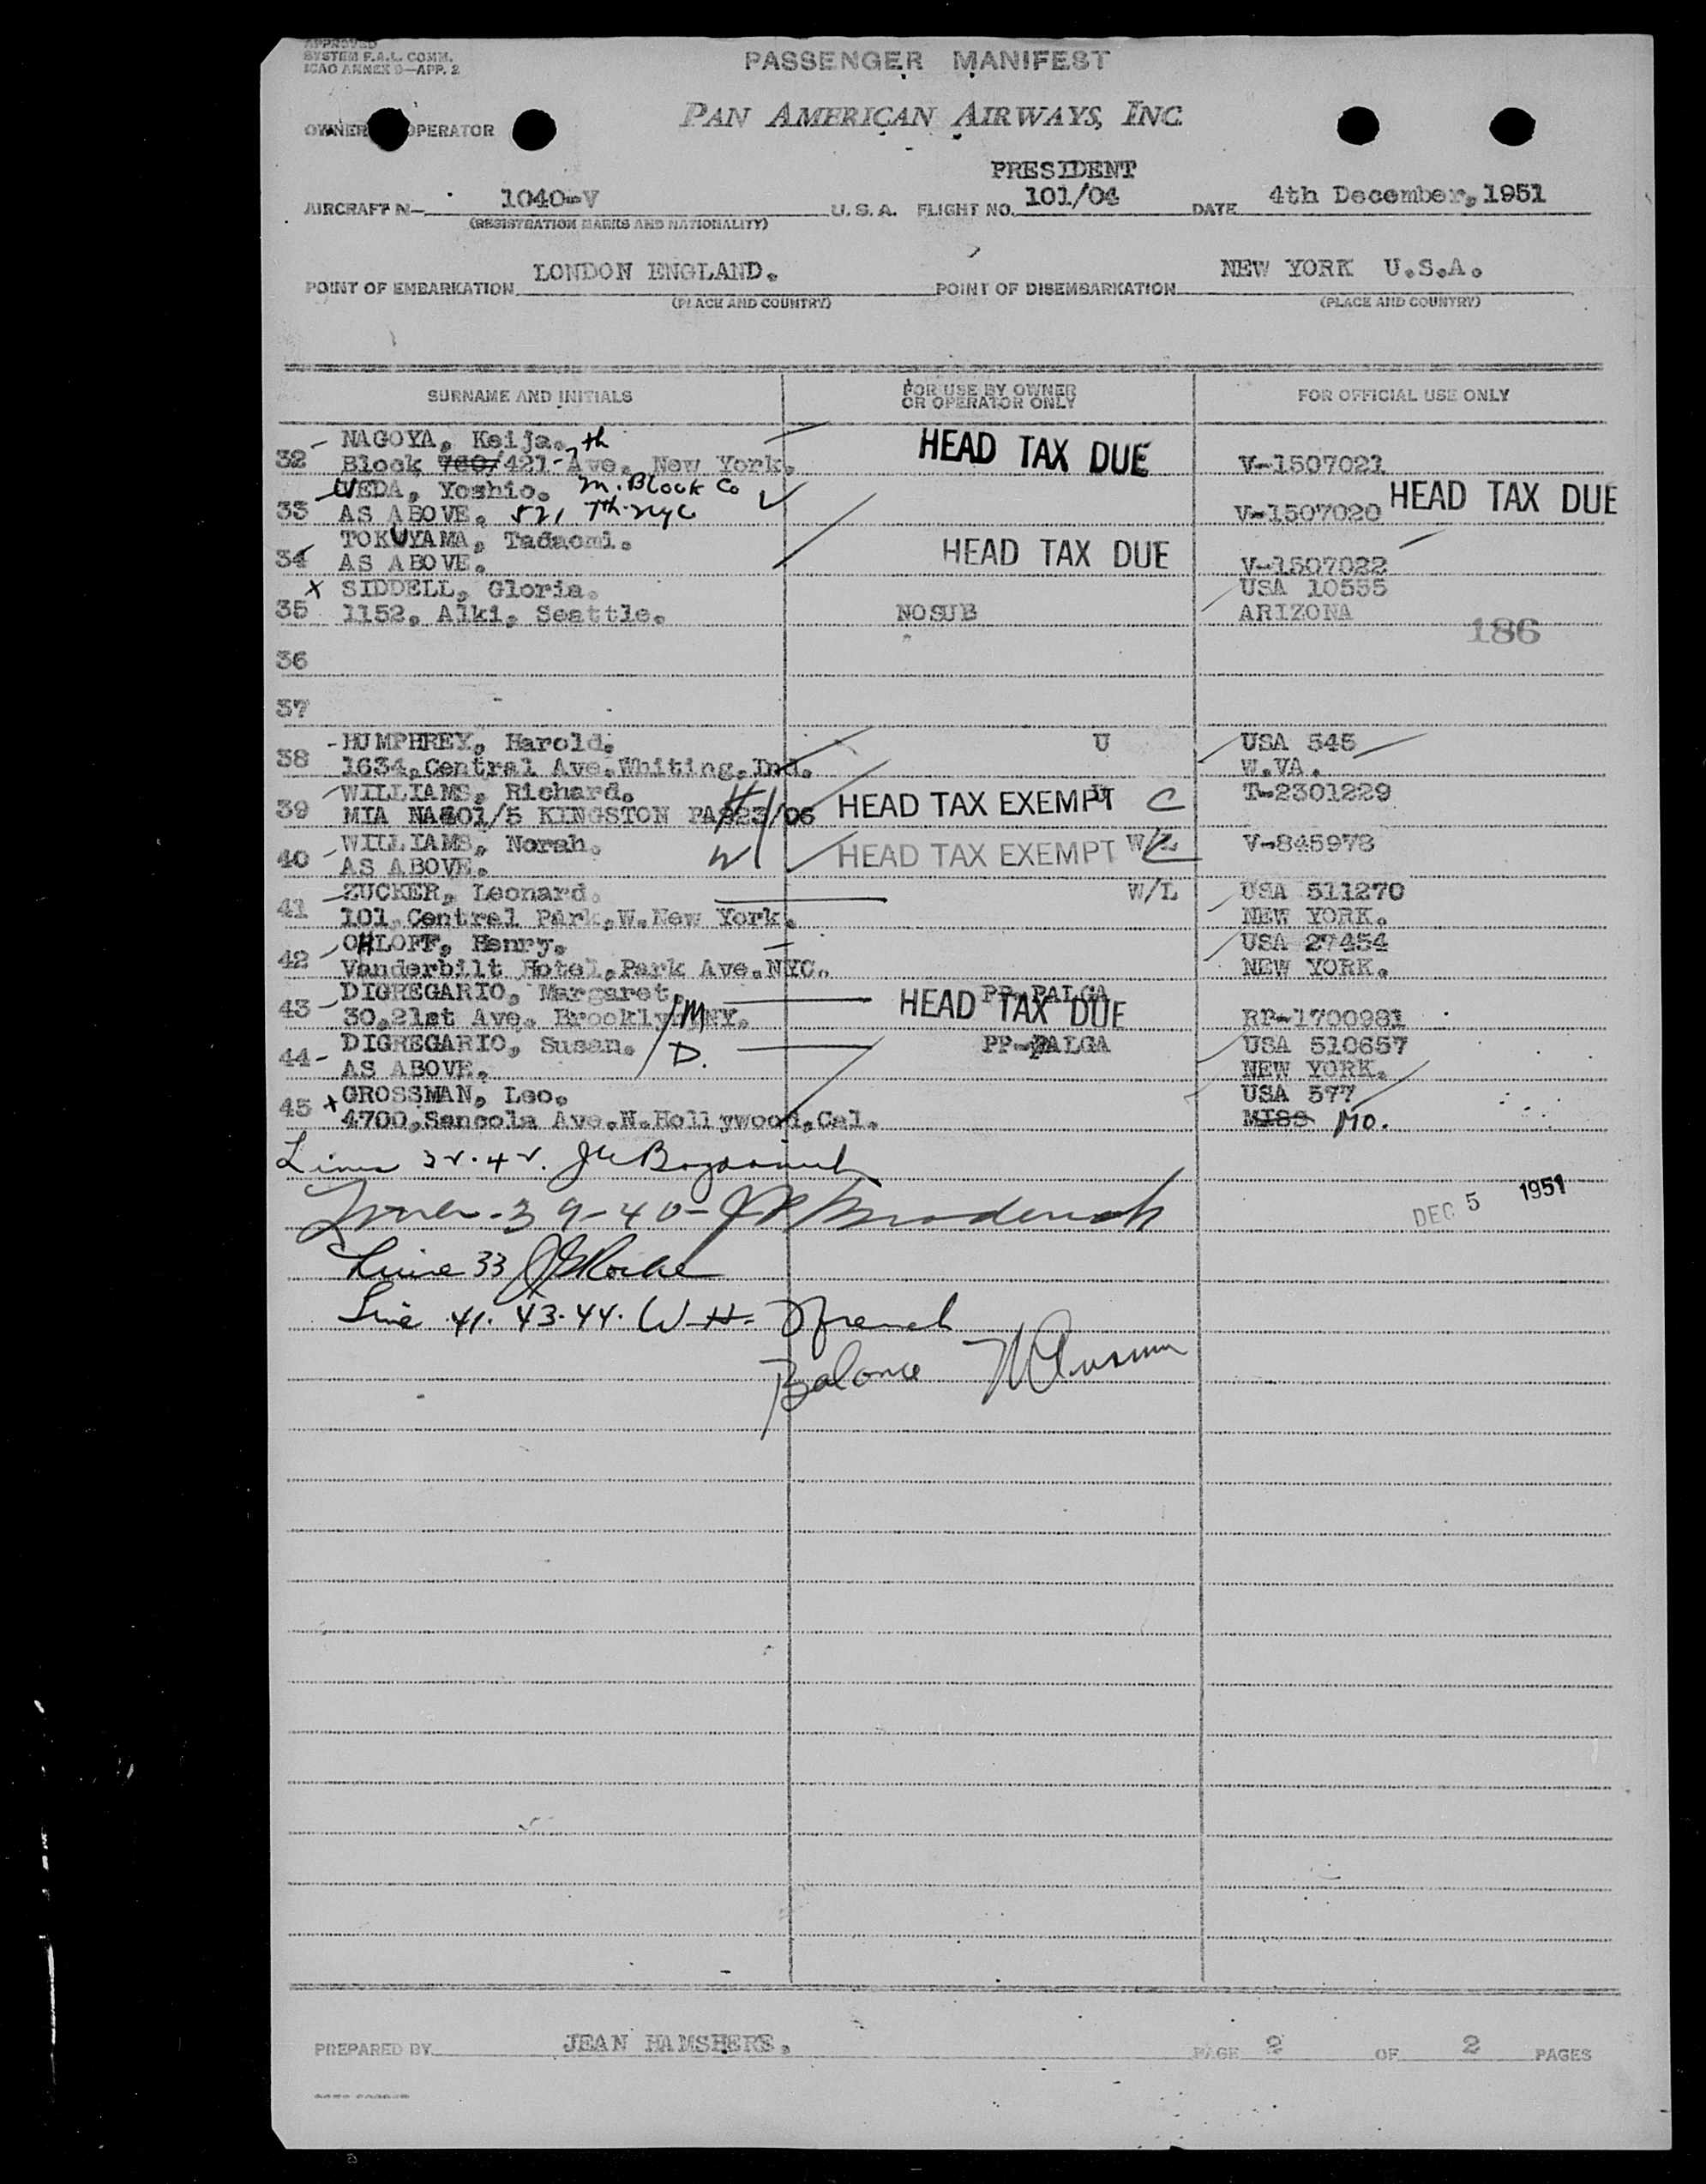 APPROVED
SYSTEM F.A.L. COMM.
ICAO ANNEX 9—APP. 2
PASSENGER MANIFEST
OWNER OPERATOR
PAN AMERICAN AIRWAYS, INC
PRESIDENT
AIRCRAFT N— 1040-V U.S.A. FLIGHT NO. 101/04 DATE 4th December, 1951
(REGISTRATION MARKS AND NATIONALITY)
POINT OF EMBARKATION LONDON ENGLAND. POINT OF DISEMBARKATION NEW YORK U.S.A.
(PLACE AND COUNTRY) (PLACE AND COUNTRY)
SURNAME AND INITIALS FOR USE BY OWNER OR OPERATOR ONLY FOR OFFICIAL USE ONLY
NAGOYA, Keija. th HEAD TAX DUE
32 Block 760/421-7 Ave. New York. V-1507021
UEDA, Yoshio. M. Block Co HEAD TAX DUE
33 AS ABOVE. 521 7th NYC V-1507020
TOKUYAMA, Tadaomi. HEAD TAX DUE
34 AS ABOVE. V-1507022
X SIDDELL, Gloria. USA 10555
35 1152, Alki, Seattle. NOSUB ARIZONA
186
36
37
HUMPHREY, Harold. U USA 545
38 1634, Central Ave. Whiting, Ind. W.VA.
WILLIAMS, Richard. H HEAD TAX EXEMPT U C T-2301229
39 MIA NA401/5 KINGSTON PA323/06
WILLIAMS, Norah. W HEAD TAX EXEMPT W/L C V-845978
40 AS ABOVE.
ZUCKER, Leonard. W/L USA 511270
41 101, Central Park, W. New York. NEW YORK.
OHLOFF, Henry. USA 27454
42 Vanderbilt Hotel, Park Ave. NYC. NEW YORK.
DIGREGARIO, Margaret. PP-PALGA
43 30, 21st Ave. Brooklyn NY. M HEAD TAX DUE RP-1700981
DIGREGARIO, Susan. D. PP-PALGA USA 510657
44 AS ABOVE. NEW YORK.
X GROSSMAN, Leo. USA 577
45 4700, Sancola Ave. N. Hollywood, Cal. MISS MO.
Lines 32. 42.
Lines - 39-40 - J P Broderick
DEC 5 1951
Line 33 J G Roche
Line 41. 43. 44. W. H. French
Balance
PREPARED BY JEAN HAMSHERE. PAGE 2 OF 2 PAGES